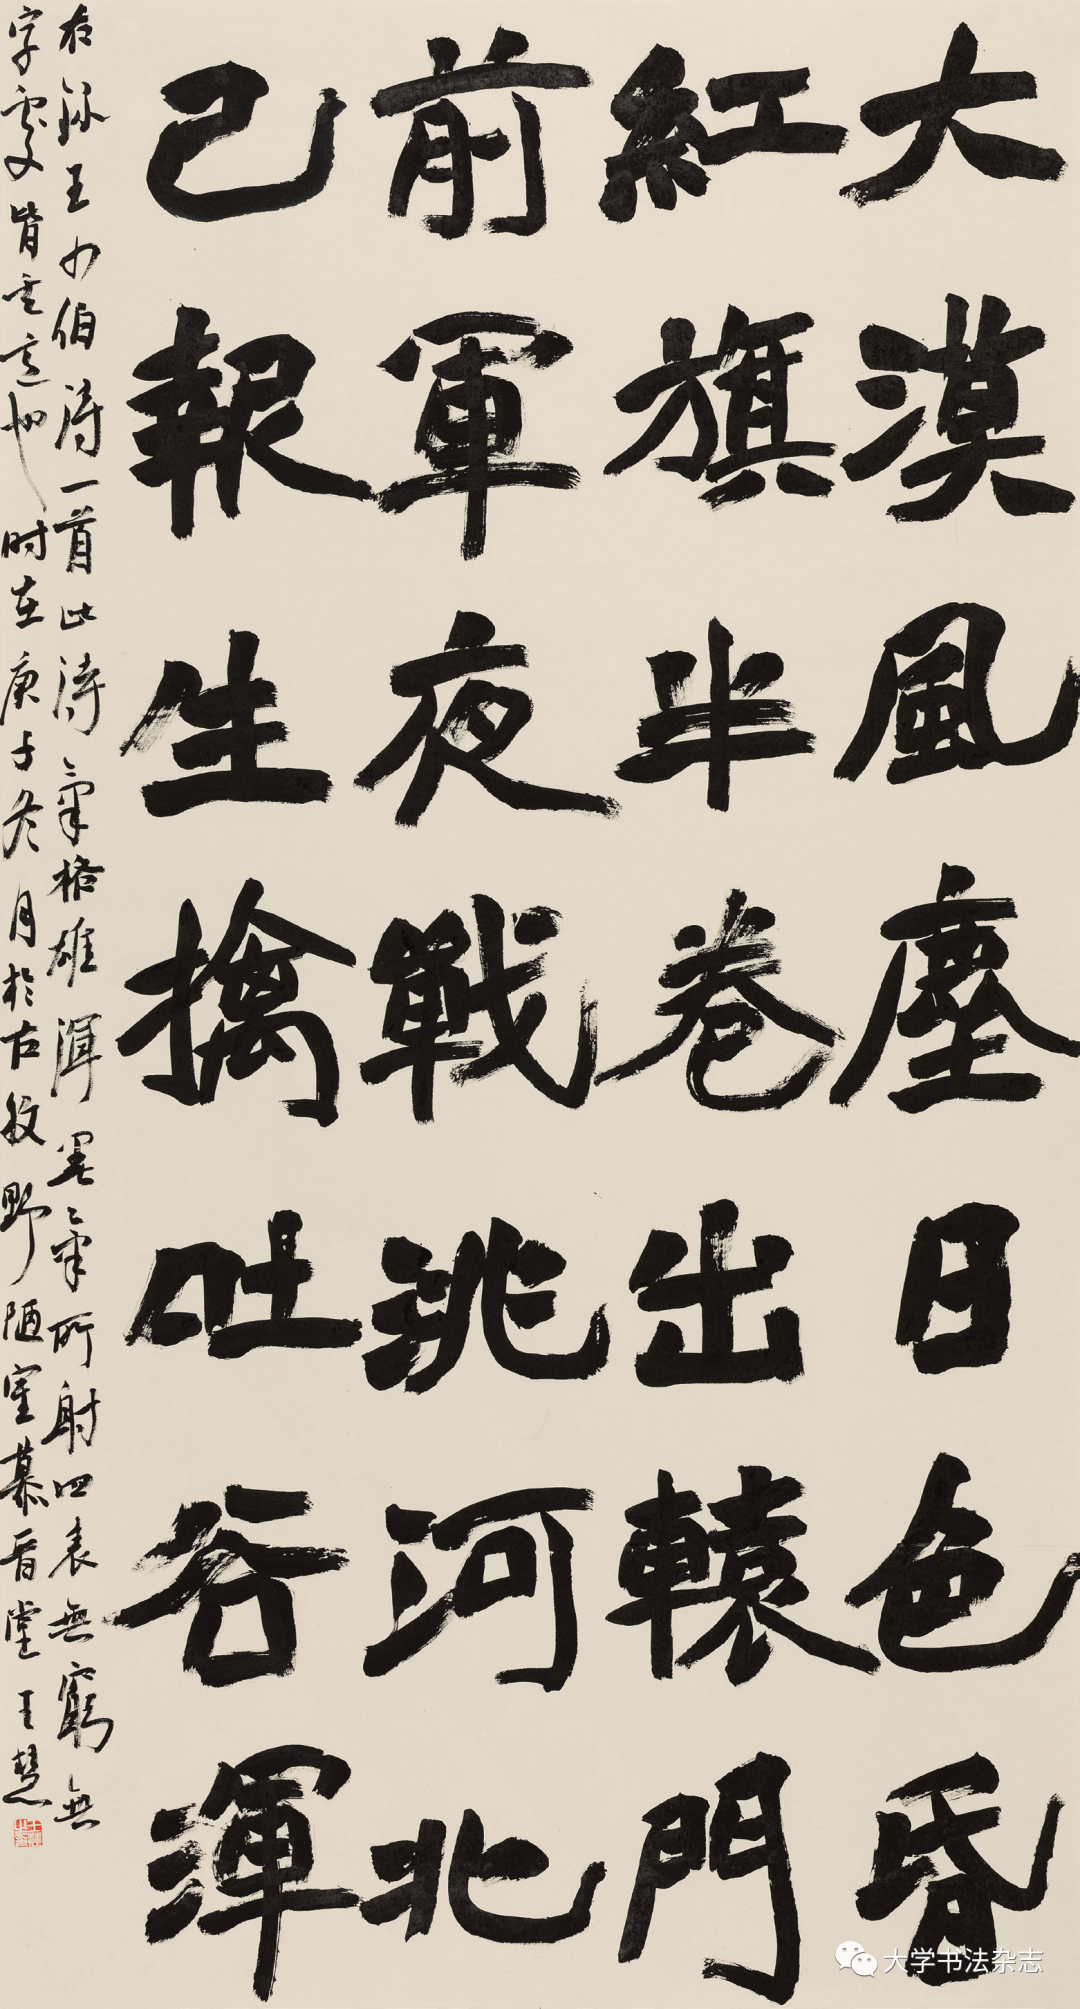 大漠風塵日色昏
紅旗半卷出轅門
前軍夜戰洮河北
已報生擒吐谷渾
右錄王少伯詩一首此詩氣格雄渾墨氣所射四表無窮無
字處皆其意也时在庚子冬月於古牧野陋室慕晉堂王慧
大学书法杂志